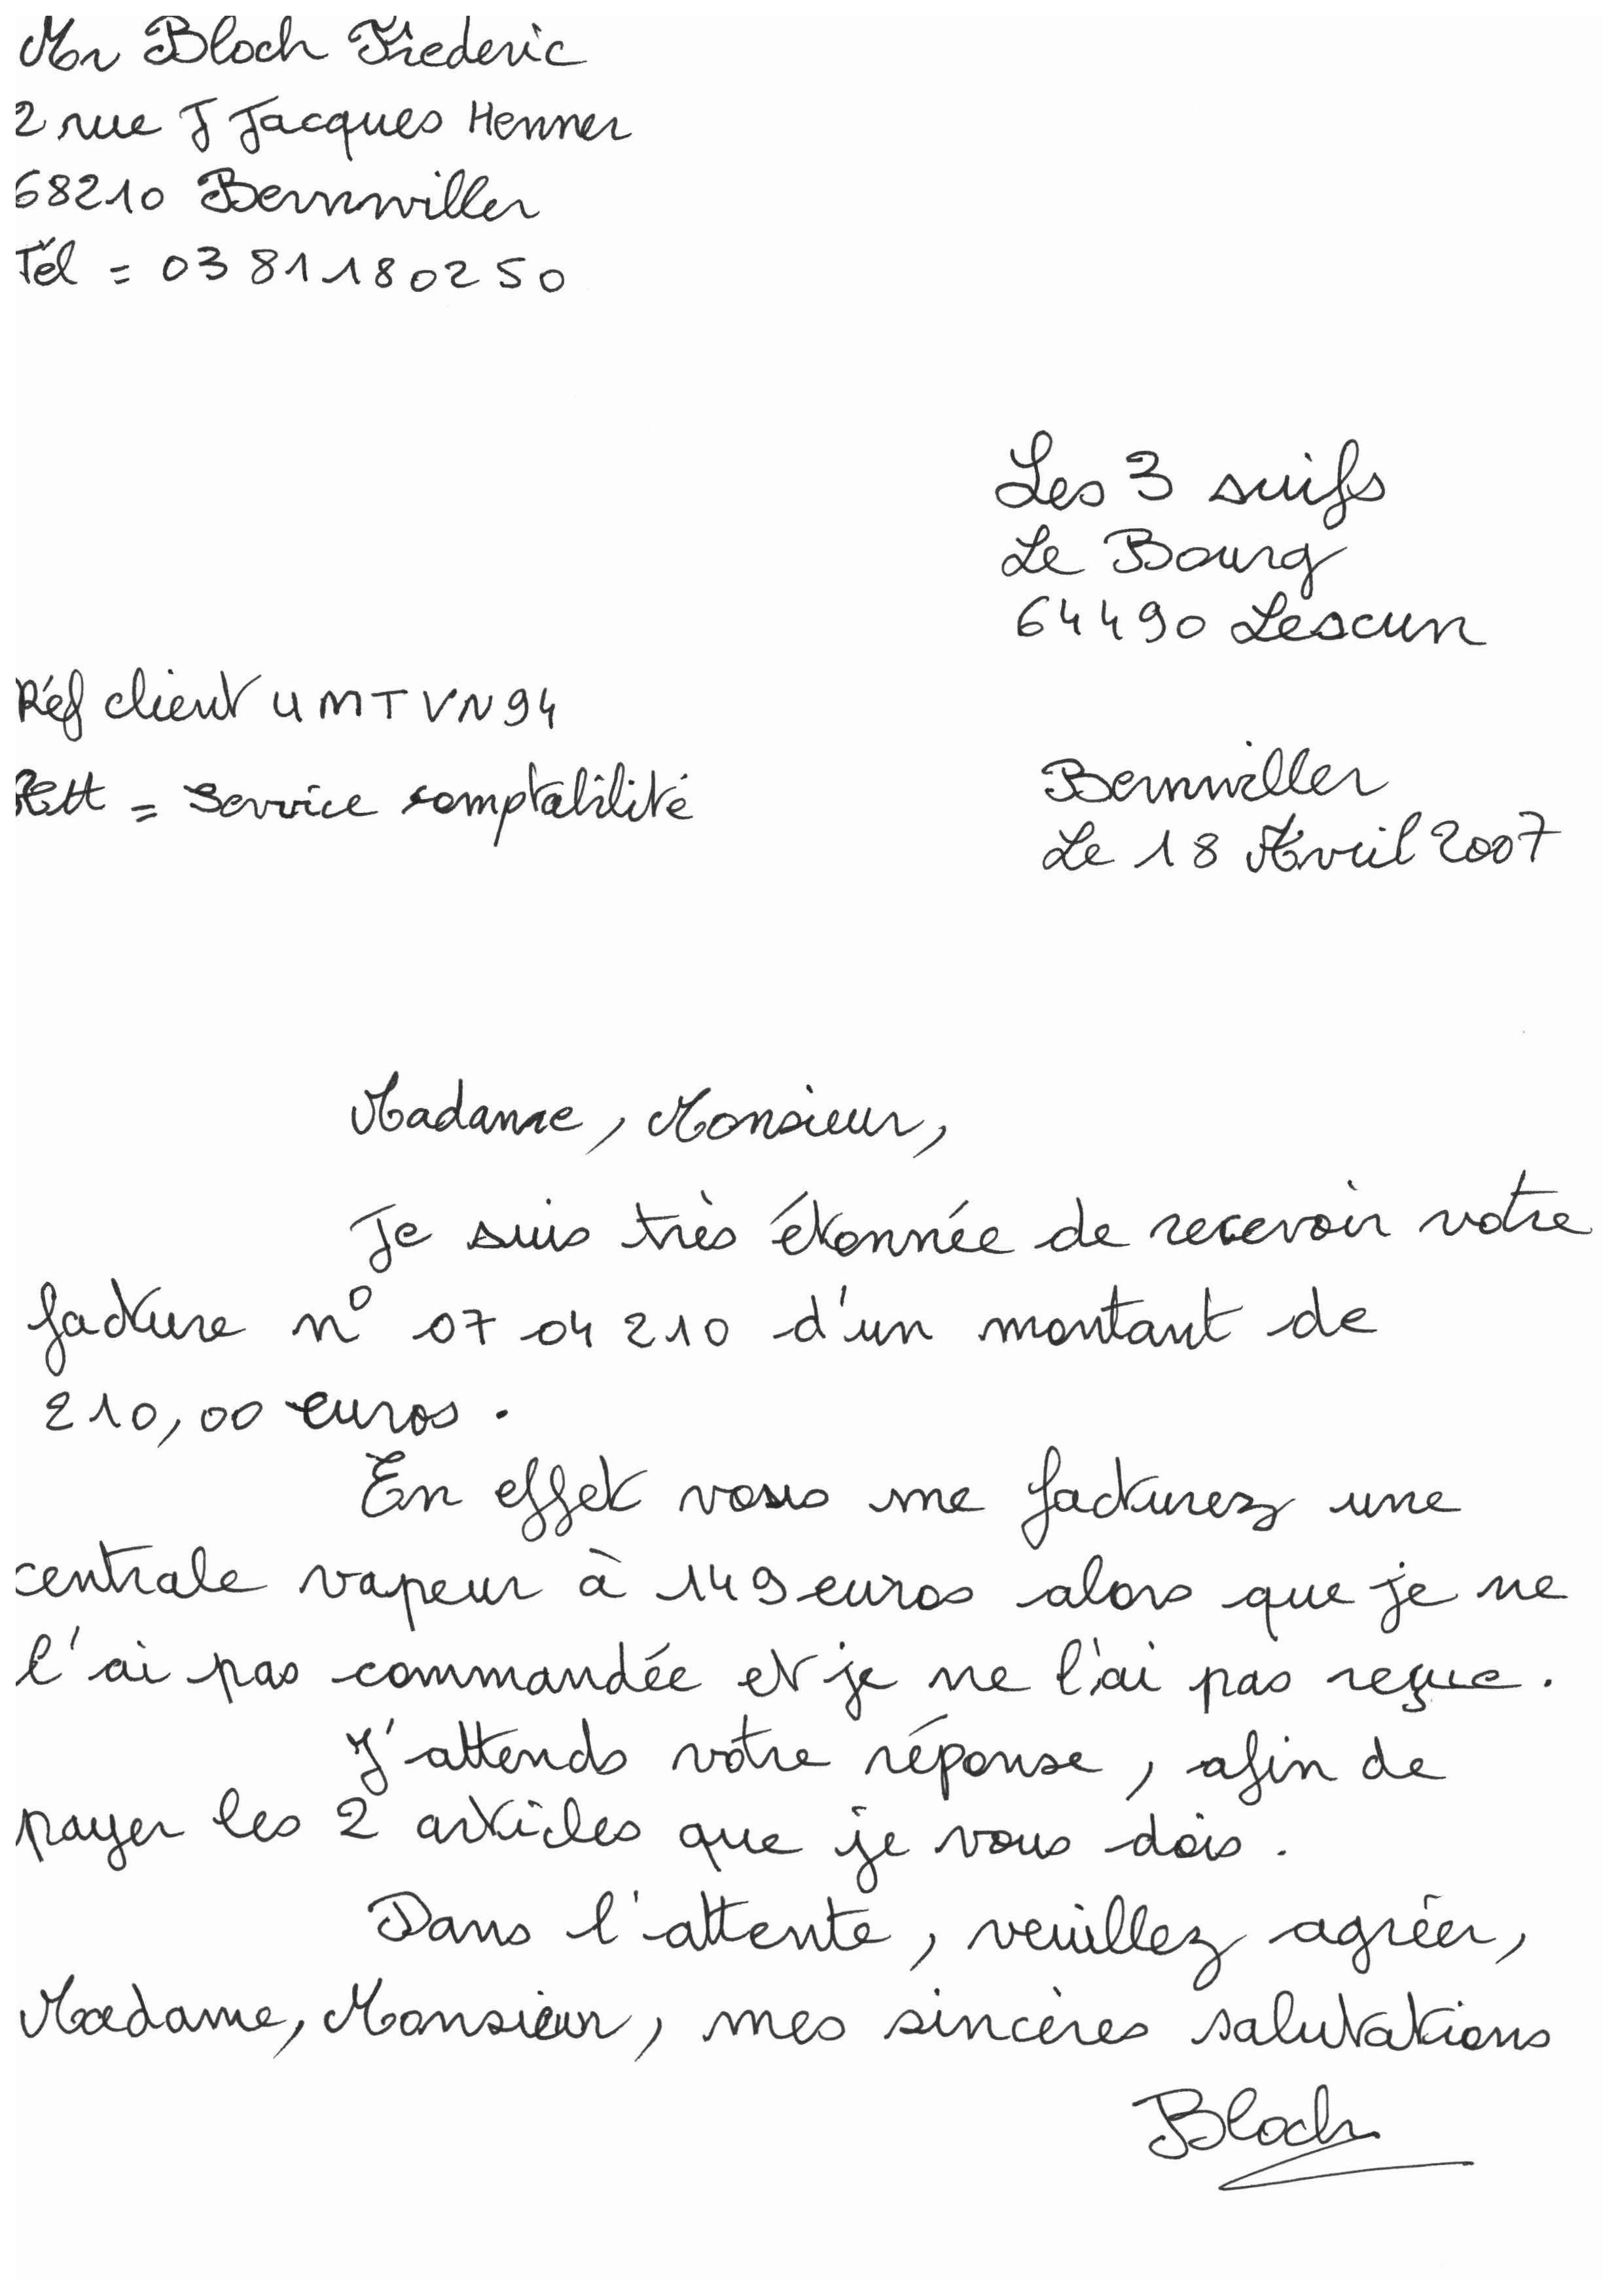 Mr Bloch Frederic
2 rue J Jacques Henner
68210 Bernwiller
Tél = 03 81 18 02 50
Les 3 suifs
Le Bourg
64490 Lescun
Réf client UMTVN94
Att = Service comptabilité
Bernwiller
Le 18 Avril 2007
Madame, Monsieur,
Je suis très étonnée de recevoir votre
facture n° 07 04 210 d'un montant de
210,00 euros.
En effet vous me facturez une
centrale vapeur à 149 euros alors que je ne
l'ai pas commandée et je ne l'ai pas reçue.
J'attends votre réponse, afin de
payer les 2 articles que je vous dois.
Dans l'attente, veuillez agréer,
Madame, Monsieur, mes sincères salutations
Bloch